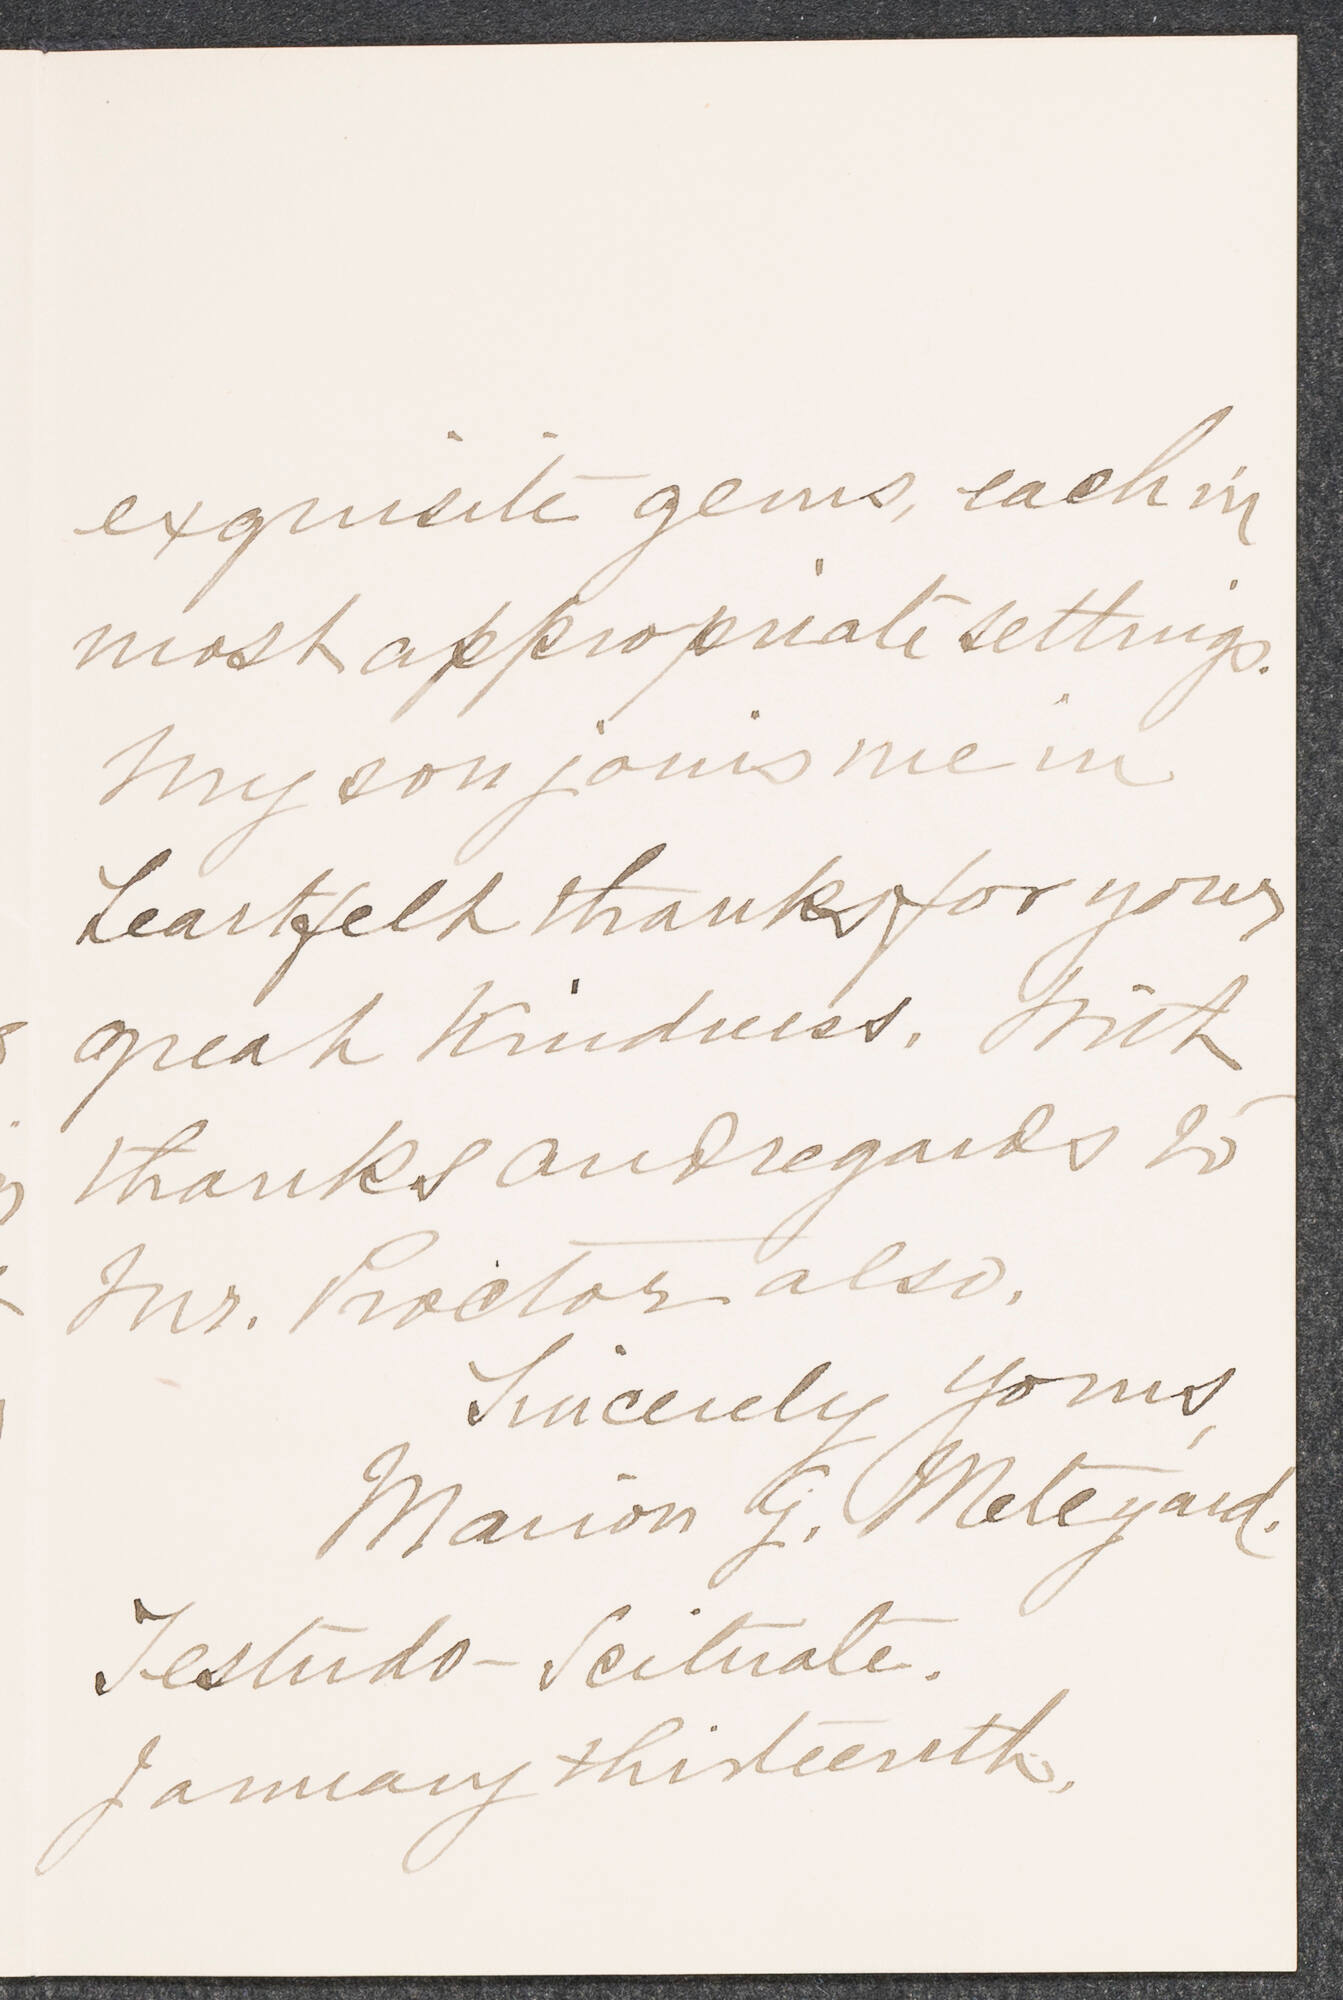 exquisite gems, each in
most appropriate settings.
My son joins me in
heartfelt thanks for your
great kindness. With
thanks and regards to
Mr. Proctor also.
Sincerely yours,
Marion G. Meteyard.
Testudo - Scituate.
January thirteenth.